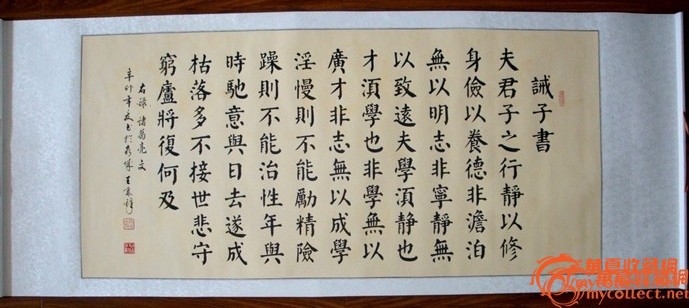 誡子書
夫君子之行靜以修
身儉以養德非澹泊
無以明志非寧靜無
以致遠夫學湏靜也
才湏學也非學無以
廣才非志無以成學
淫慢則不能勵精險
躁則不能治性年與
時馳意與日去遂成
枯落多不接世悲守
窮廬將復何及
右录諸葛亮文
辛卯年
華夏收藏網
mycollect.net